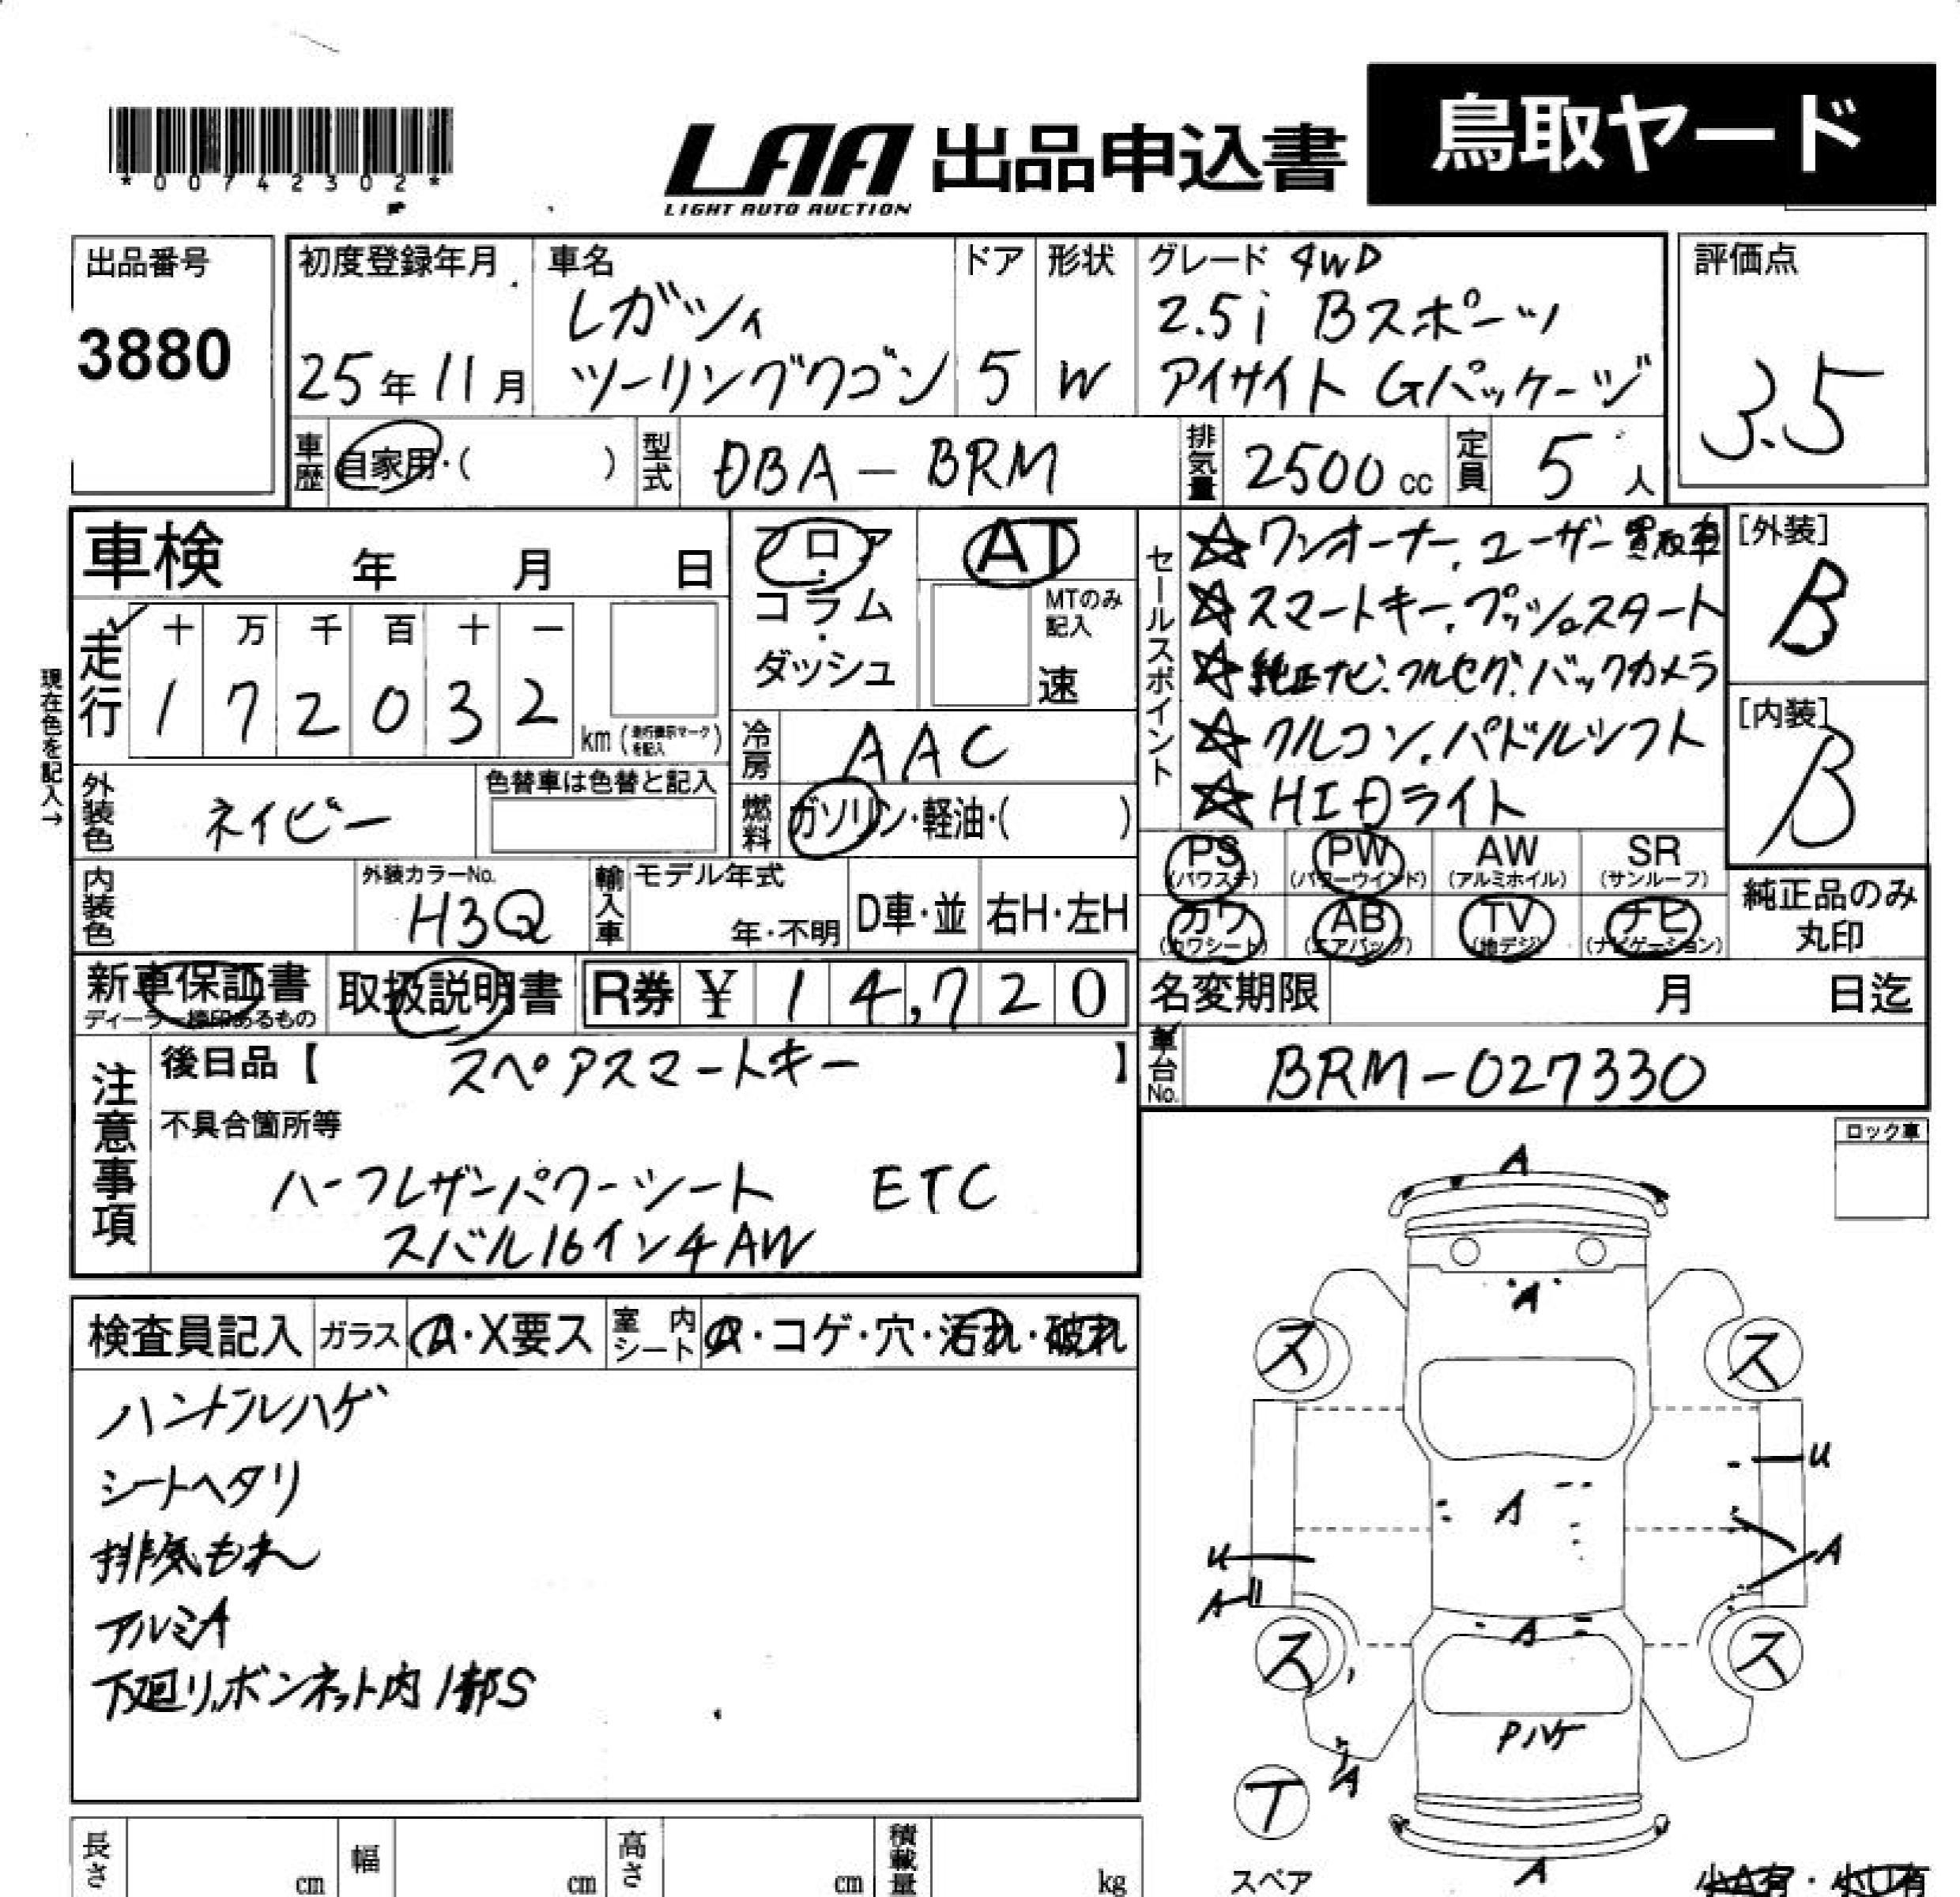 *00742302*
LAA 出品申込書 鳥取ヤード
LIGHT AUTO AUCTION
出品番号
3880
初度登録年月
25年11月
車名
レガシィ
ツーリングワゴン
ドア
5
形状
W
グレード 4WD
2.5i Bスポーツ
アイサイト Gパッケージ
評価点
3.5
車歴 自家用・( )
型式 DBA-BRM
排気量 2500 cc
定員 5 人
車検 年 月 日
フロア・コラム・ダッシュ
AT
MTのみ記入
速
セールスポイント
☆ワンオーナー、ユーザー買取車
☆スマートキー、プッシュスタート
☆純正ナビ、フルセグ、バックカメラ
☆クルコン、パドルシフト
☆HIDライト
[外装]
B
[内装]
B
現在色を記入→
走行
十 万 千 百 十 一
1 7 2 0 3 2
km(走行表示マークを記入)
冷房 AAC
外装色 ネイビー
色替車は色替と記入
燃料 ガソリン・軽油・( )
PS (パワステ)
PW (パワーウインド)
AW (アルミホイル)
SR (サンルーフ)
カワ (カワシート)
AB (エアバッグ)
TV (地デジ)
ナビ (ナビゲーション)
純正品のみ
丸印
内装色
外装カラーNo.
H3Q
輸入車
モデル年式
年・不明
D車・並
右H・左H
新車保証書
ディーラー検印あるもの
取扱説明書
R券 ¥ 14,720
名変期限 月 日迄
車台No. BRM-027330
注意事項
後日品【 スペアスマートキー 】
不具合箇所等
ハーフレザーパワーシート ETC
スバル16インチAW
ロック車
検査員記入
ガラス A・X要ス
室内シート
・コゲ・穴・汚れ・破れ
ハンドルハゲ
シートヘタリ
排気もれ
アルミA
下廻り、ボンネット内1部S
A
A
ス
ス
U
A
U
A
A
A
ス
ス
Pハゲ
A
T
スペア
A
小A有・小U有
長さ cm
幅 cm
高さ cm
積載量 kg